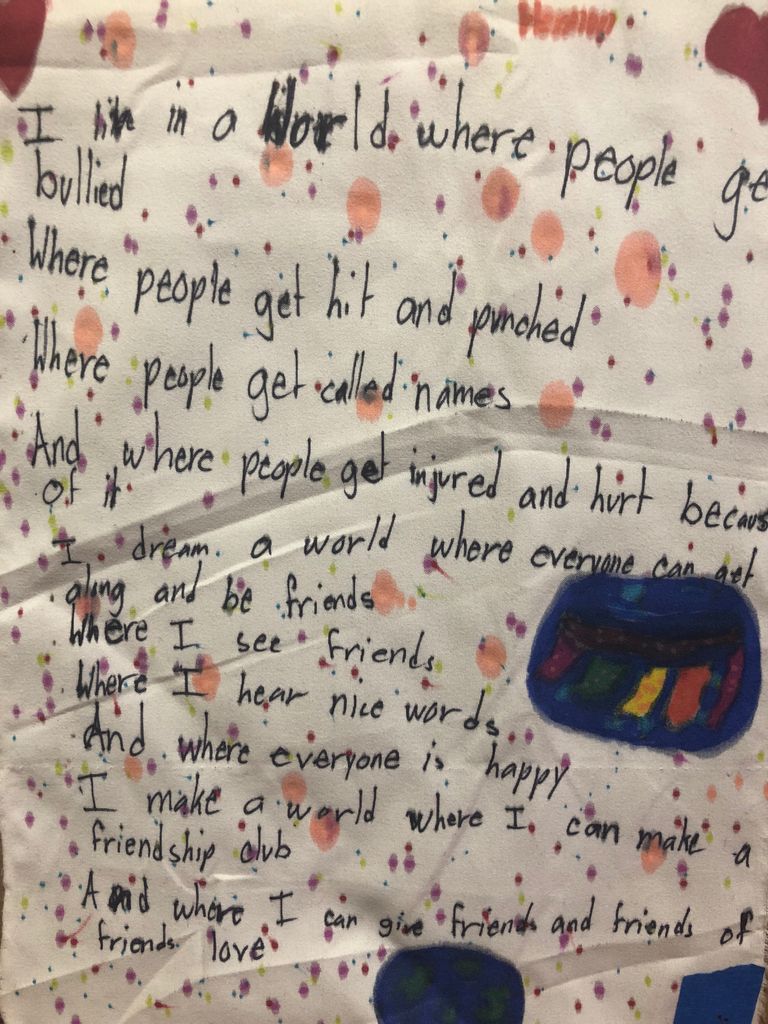 I in a World where people ge
bullied
Where people get hit and punched
Where people get called names
And where people get injured and hurt becaus
of it
I dream a world where everyone can get
along and be friends
Where I see friends
Where I hear nice words
And where everyone is happy
I make a world where I can make a
friendship club
And where I can give friends and friends of
friends love